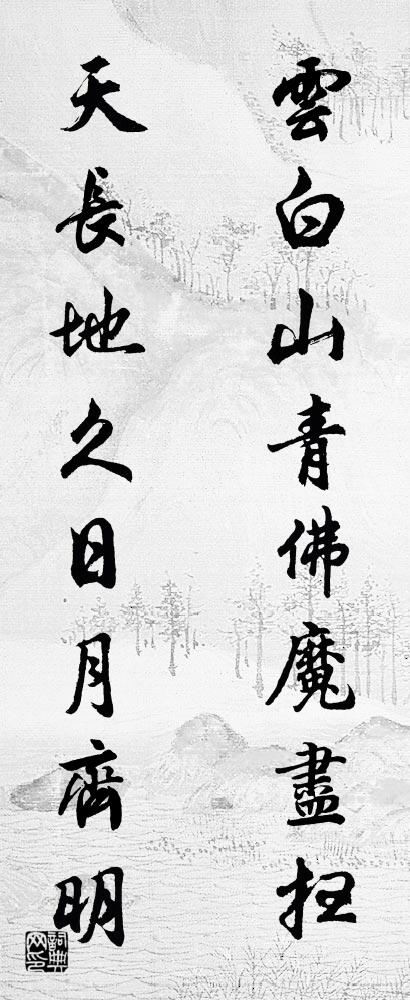 雲白山青佛魔盡扫
天長地久日月齊明
詞典网印